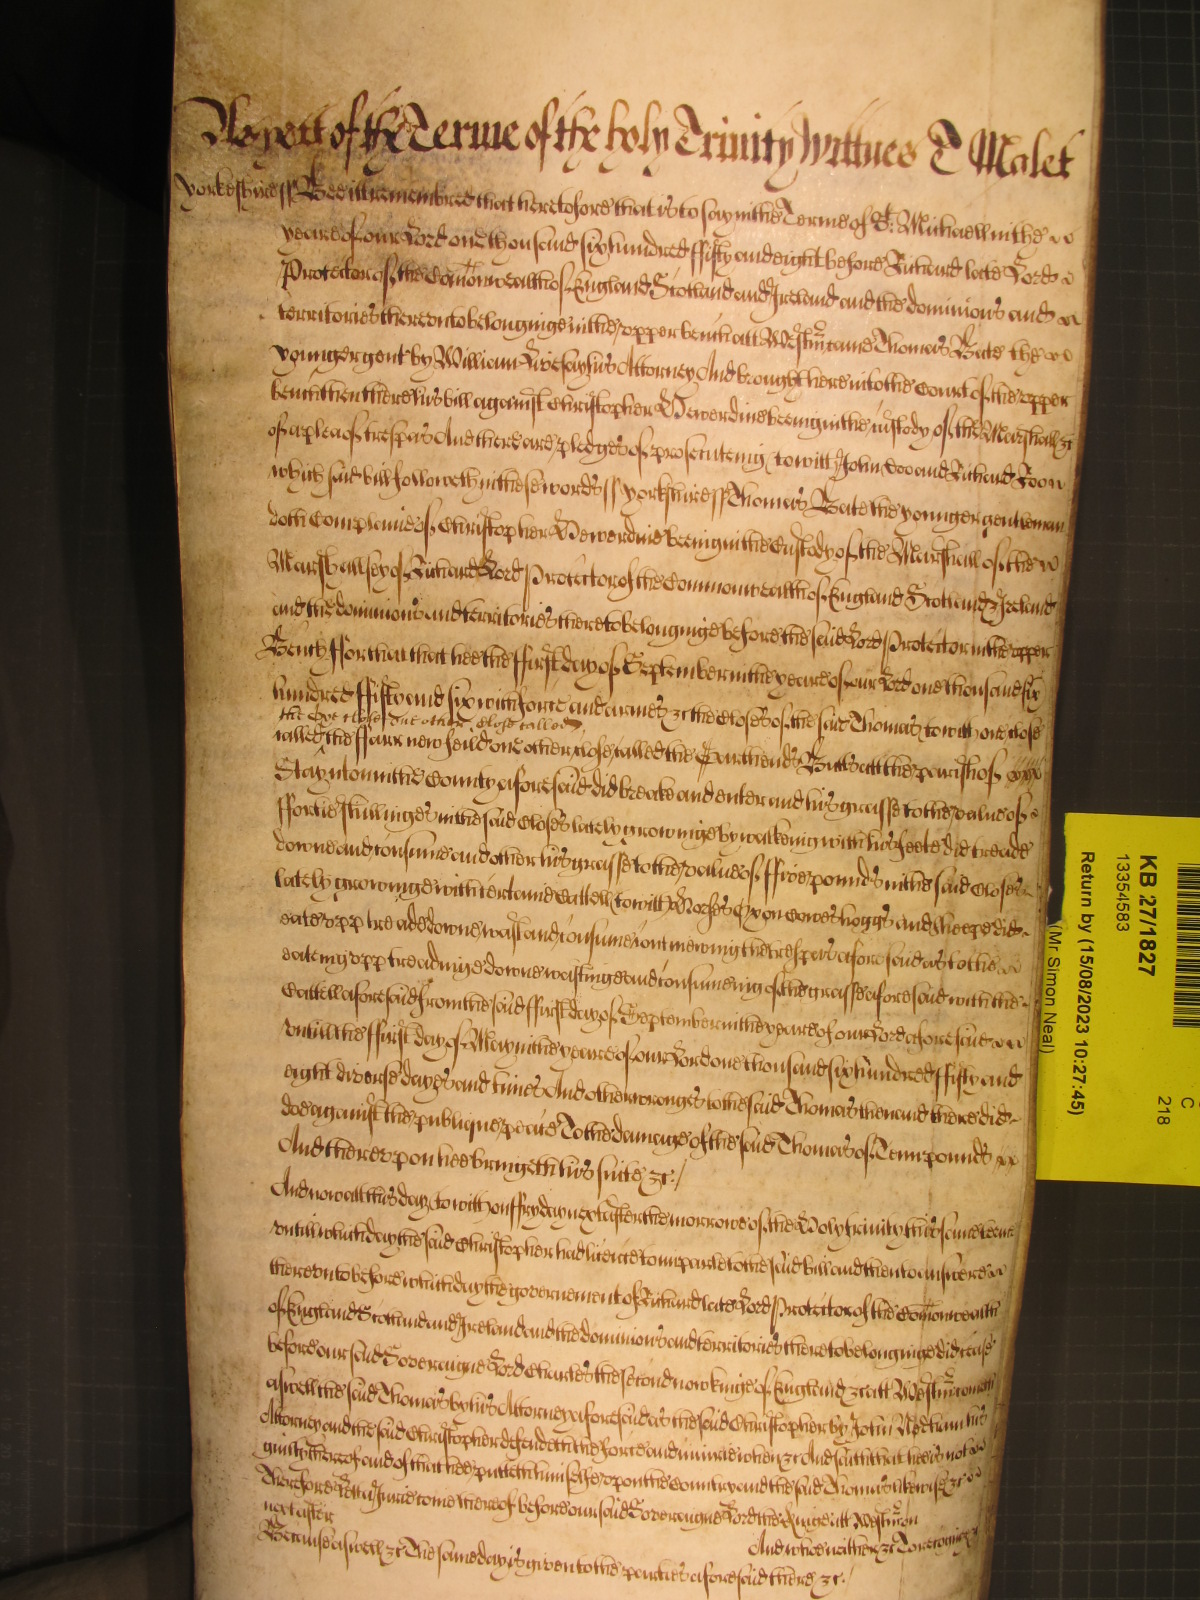 As yett of the Terme of the holy Trinity Wittnes T Malet
Yorkeshire ss Bee it remembred that heretofore that is to say in the Terme of St. Michaell in the
yeare of our Lord one thousand six hundred ffifty and eight before Richard late Lord
Protector of the Comonwealth of England Scotland and Ireland and the dominions and
territories thereunto belonginge in the upper bench att Westmr came Thomas Bate the
younger gent by William Livesay his Attorney And brought here into the Court of the upper
bench then there his bill against Christopher Hewerdine beeing in the custody of the Marshall &c
of a plea of trespas And there are pledges of prosecuteing to witt John Doo and Richard Roo
which said bill followeth in these words ss Yorkshire ss Thomas Bate the younger gentleman
doth Complaine of Christopher Hewerdine beeing in the Custody of the Marshall of the
Marshallsey of Richard Lord Protector of the Commonwealth of England Scotland & Ireland
and the dominions and territories thereto belonginge before the said Lord Protector in the upper
Bench ffor that that hee the ffirst day of September in the yeare of our Lord one thousand six
hundred ffifty and six with force and armes &c the Closes of the said Thomas to witt one close
the Oxe close one other Close called
called the ffarr new feild one other close called the Carr hends Butts att the parish of
Staynton in the County aforesaid did breake and enter and his grasse to the value of
ffortie shillinges in the said Closes lately growinge by walkeing with his feete did treade
downe and consume and other his grasse to the value of ffive pounds in the said Closes
lately growinge with certaine Cattell to witt Horses Oxen Cowes hoggs and sheepe did
eate upp treade downe wast and consume continewing the trespas aforesaid as to the
eateing upp treadinge downe wastinge and consumeing of the grasse aforesaid with the
Cattell aforesaid from the said ffirst day of September in the yeare of our Lord aforesaid
untill the ffirst day of May in the yeare of our Lord one thousand six hundred ffifty and
eight diverse dayes and times And other wronges to the said Thomas then and there did
doe against the publique peace To the damage of the said Thomas of Tenn pounds
And thereupon hee bringeth his suite &c./
And now att this day to witt on ffryday next after the morrowe of the Holy trinity this same terme
untill which day the said Christopher had licence to imparle to the said bill and then to answere
thereunto before which day the governement of Richard late Lord Protector of the Comonwealth
of England Scotland and Ireland and the dominions and territories thereto belonginge did cease
before our said Soveraigne Lord Charles the second now kinge of England &c att Westmr cometh
aswell the said Thomas by his Attorney aforesaid as the said Christopher by John Nedham his
Attorney and the said Christopher defendeth the force and iniurie when &c And saith that hee is not
guilty thereof and of that hee putteth himselfe upon the Country and the said Thomas likewise &c
Therefore Lett a Jurie come thereof before our said Soveraigne Lord the Kinge att Westmr on
next after And who neither &c To recognize &c
Because aswell &c The same day is given to the parties aforesaid there &c./
KB 27/1827
13354583
Return by (15/08/2023 10:27:45)
(Mr Simon Neal)
C
218